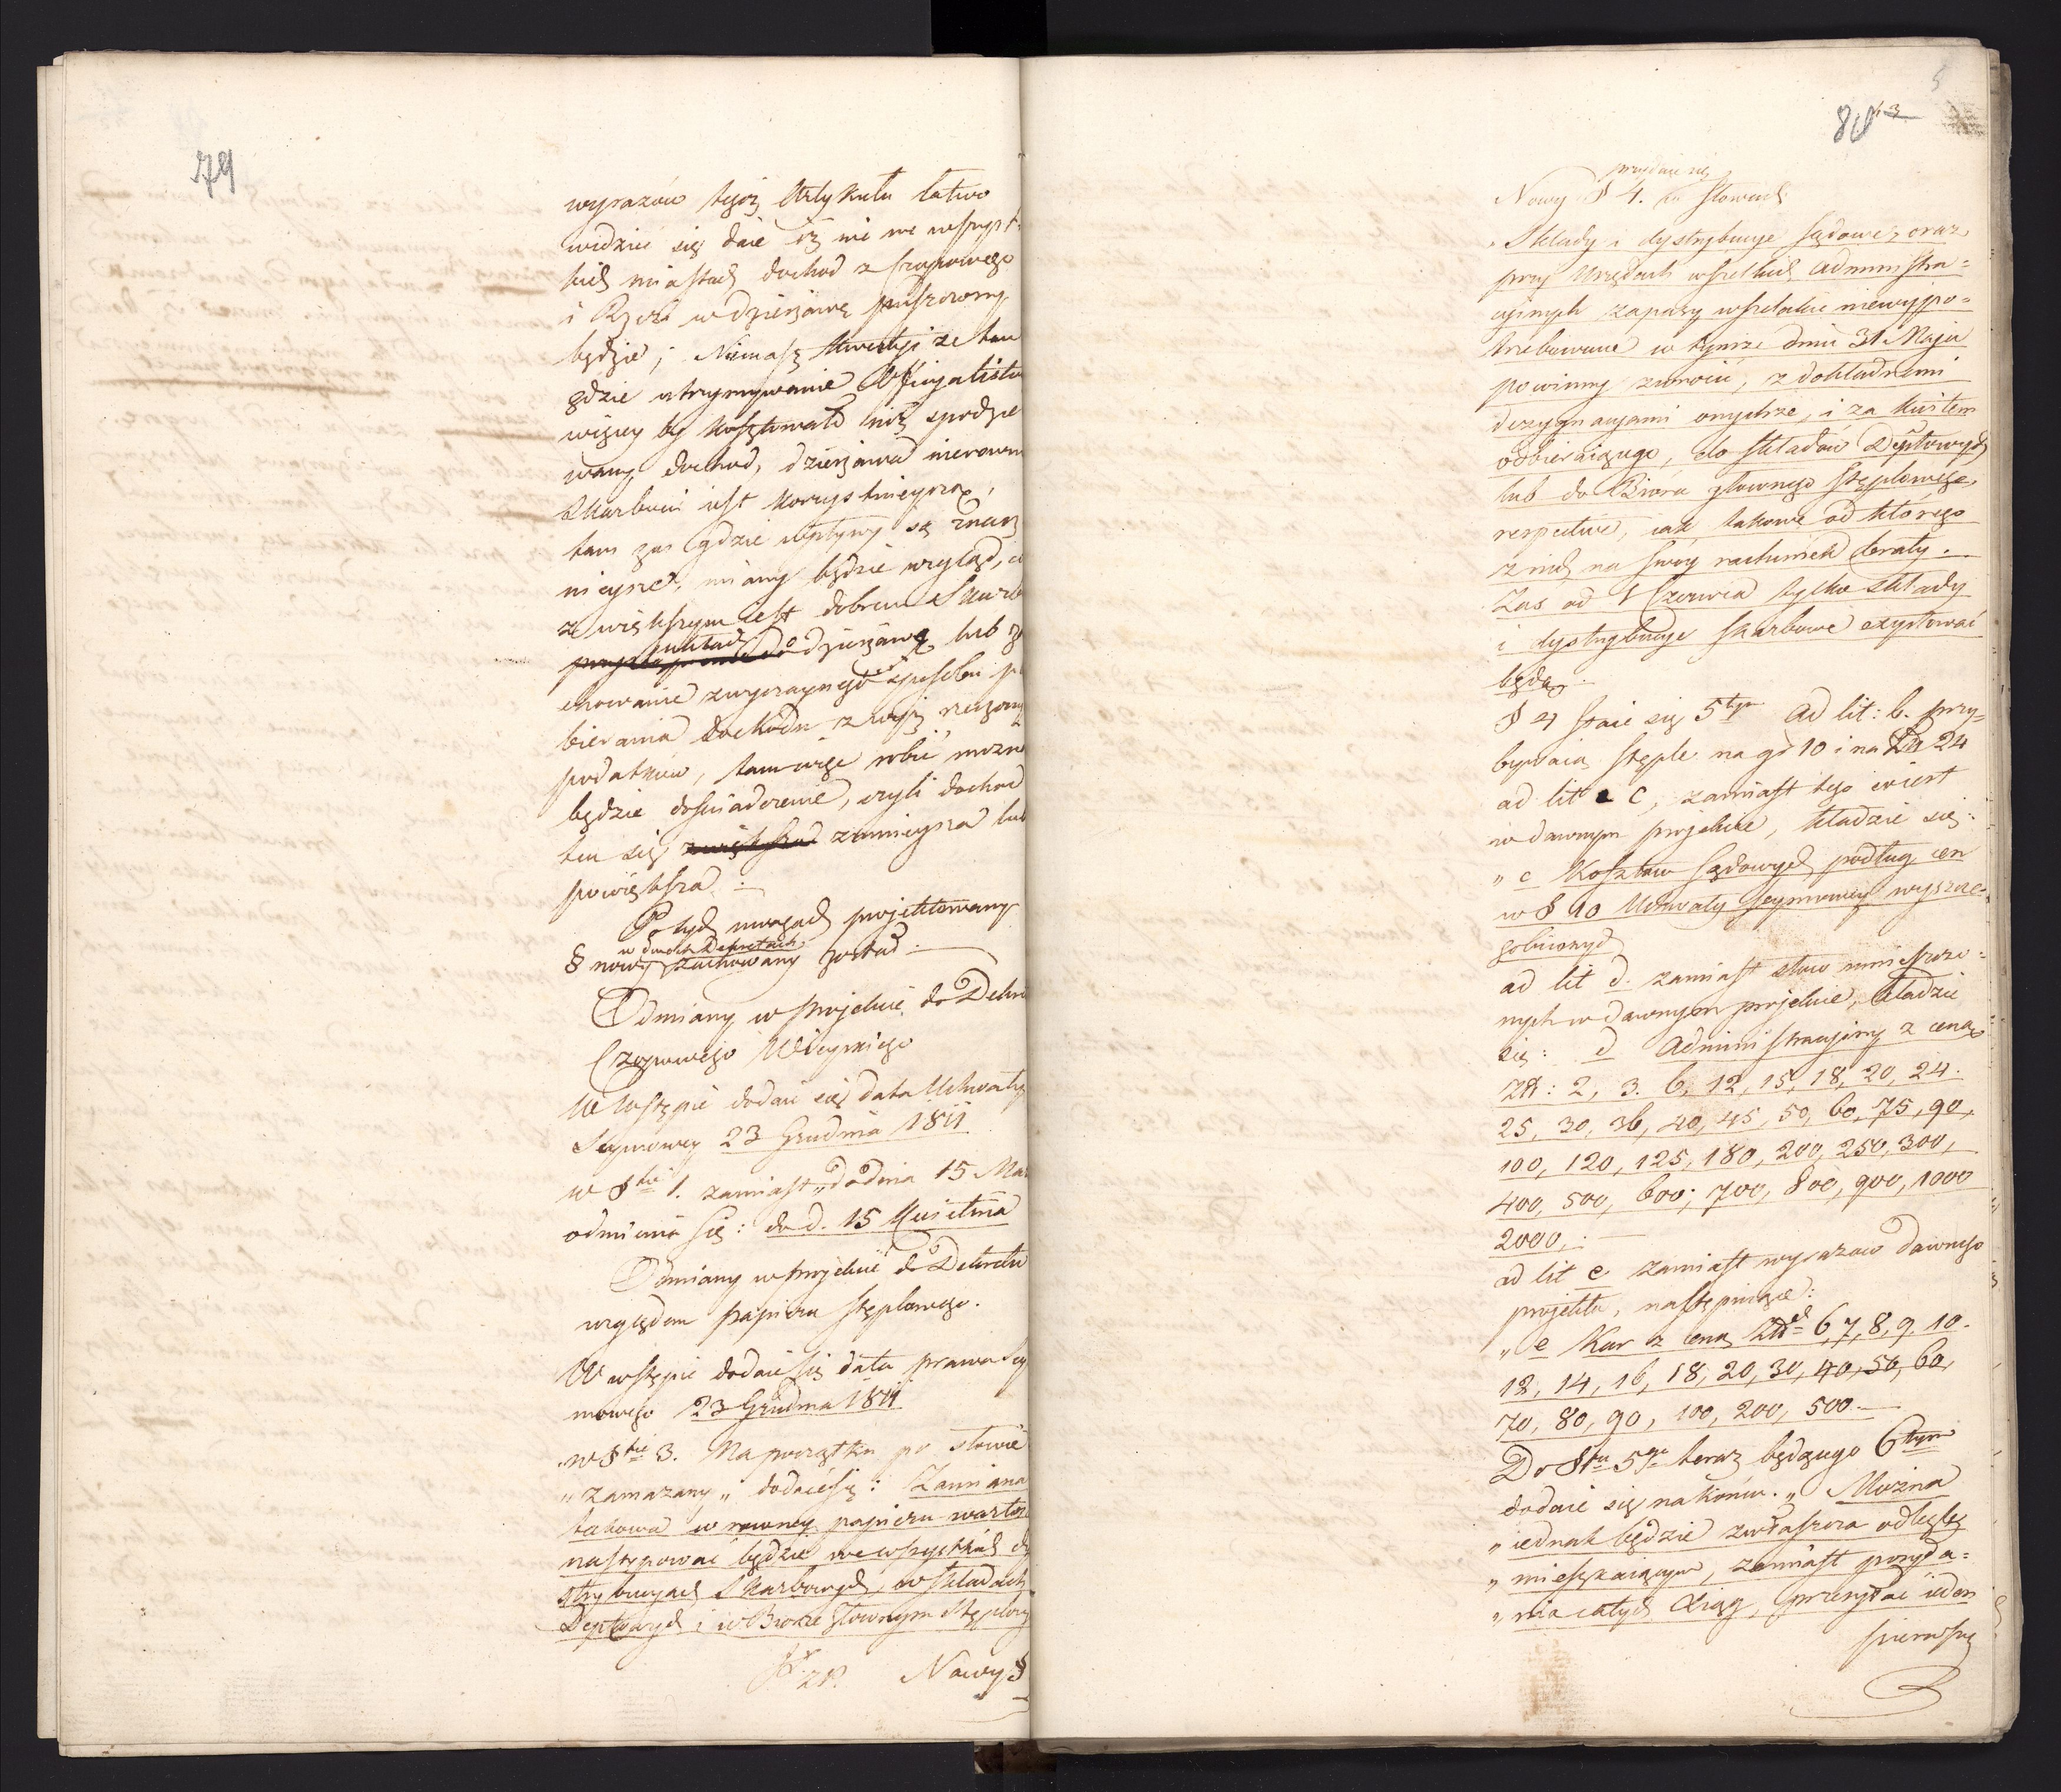 79
wyrazów tegoż Artykułu łatwo
widzieć się daie iż nie we wszyst-
kich miastach dochod z Czopowego
i Rzezi w dzierżawę puszczony
będzie; Niemasz kwestyi ze tam
gdzie utrzymywanie Officyalistów
więcey by kosztowało niż spodzie
wany dochod, dzierżawa nierowno
Skarbowi iest korzystnieysza,
tam zas gdzie wpływy są znacz
nieysze, miany będzie wzgląd, co
z większym iest dobrem Skarbu
układ o dzierżawę lub za
chowanie zwyczaynego sposobu po
bierania dochodu z wyż rzeczony
podatków, tam więc robić można
będzie doświadczenie, czyli dochod
ten się zwiększa zmnieysza lub
powiększa.
Po tych uwagach projektowany
w dwóch Dekretach
§ nowy zachowany został.
Odmiany w projekcie do Dekre
Czopowego Wieyskiego
We Wstępie dodaie się data Uchwały
Seymowey 23 Grudnia 1811
w §fie 1. zamiast „do dnia 15 Mar
odmienia się: do d. 15 Kwietnia
Odmiany w projekcie do Dekretu
względem papieru stęplowego.
W wstępie dodaie się data prawa Sey
mowego 23 Grudnia 1811
w §fie 3. Na początku po słowie
„zamazany„ dodaie się: Zamiana
takowa w rowney papieru wartos
następować będzie we wszystkich dy
strybucyach Skarbowych, w składach
Deptowych i w Biorze Głownym Stęplowy
Nowy §
80
Nowy § 4. przydaie się w słowach
„Składy i dystrybucye sądowe, oraz
przy Urzędach wszelkich Administra=
cyinych zapasy wszelakie niewypo=
trzebowane w tymże dniu 31 Maja
powinny zwrocić, z dokładnemi
dezygnacyami onychże, i za kwitem
odbieraiącego, do składów Deptowych
lub do Biora głownego stęplowego,
respective, iak takowe od którego
z nich na swoy rachunek brały.
Zas od 1 Czerwca tylko składy
i dystrybucye skarbowe exystować
będą.
§ 4 staie się 5tym Ad lit: b. przy=
bywaią stęple na gr 10 i na Zł 24
ad lit c, zamiast tego co iest
w dawnym projekcie, kładzie się:
„c Kosztow sądowych podług cen
w § 10 Uchwały Seymowey wyszcze-
golnionych
ad lit d. zamiast słow umieszczo=
nych w dawnym projekcie, kładzie
się: d Administracyiny z ceną
Zł: 2, 3. 6, 12, 15, 18, 20, 24.
25, 30, 36, 40, 45, 50, 60, 75, 90,
100, 120, 125, 180, 200, 250, 300,
400, 500, 600, 700, 800, 900, 1000
2000.
ad lit e zamiast wyrazow dawnego
projektu, następuiące:
„e Kar z ceną Zł 6, 7, 8, 9, 10.
12, 14, 16, 18, 20, 30, 40, 50, 60,
70, 80, 90, 100, 200, 500.
Do §fu 5go teraz będącego 6tym
dodaie się na końcu. „Można
„iednak będzie zwłaszcza odległey
„mieszkaiącym, zamiast posyła=
„nia całych Xiąg, przesyłać ieden
pierwszy